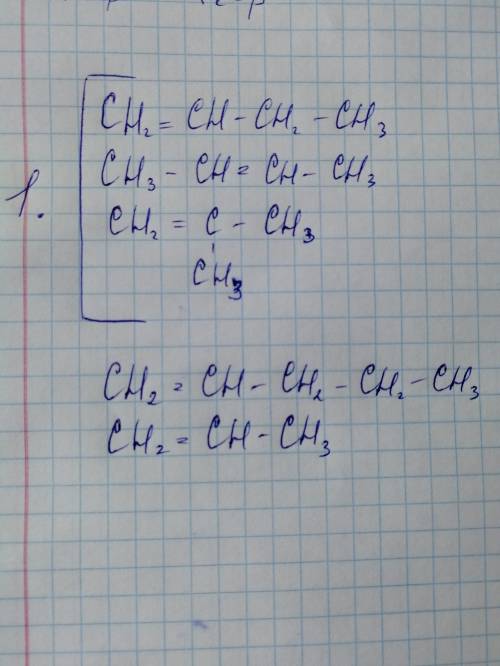 1.
CH₂ = CH - CH₂ - CH₃
CH₃ - CH = CH - CH₃
CH₂ = C - CH₃
CH₃
CH₂ = CH - CH₂ - CH₂ - CH₃
CH₂ = CH - CH₃